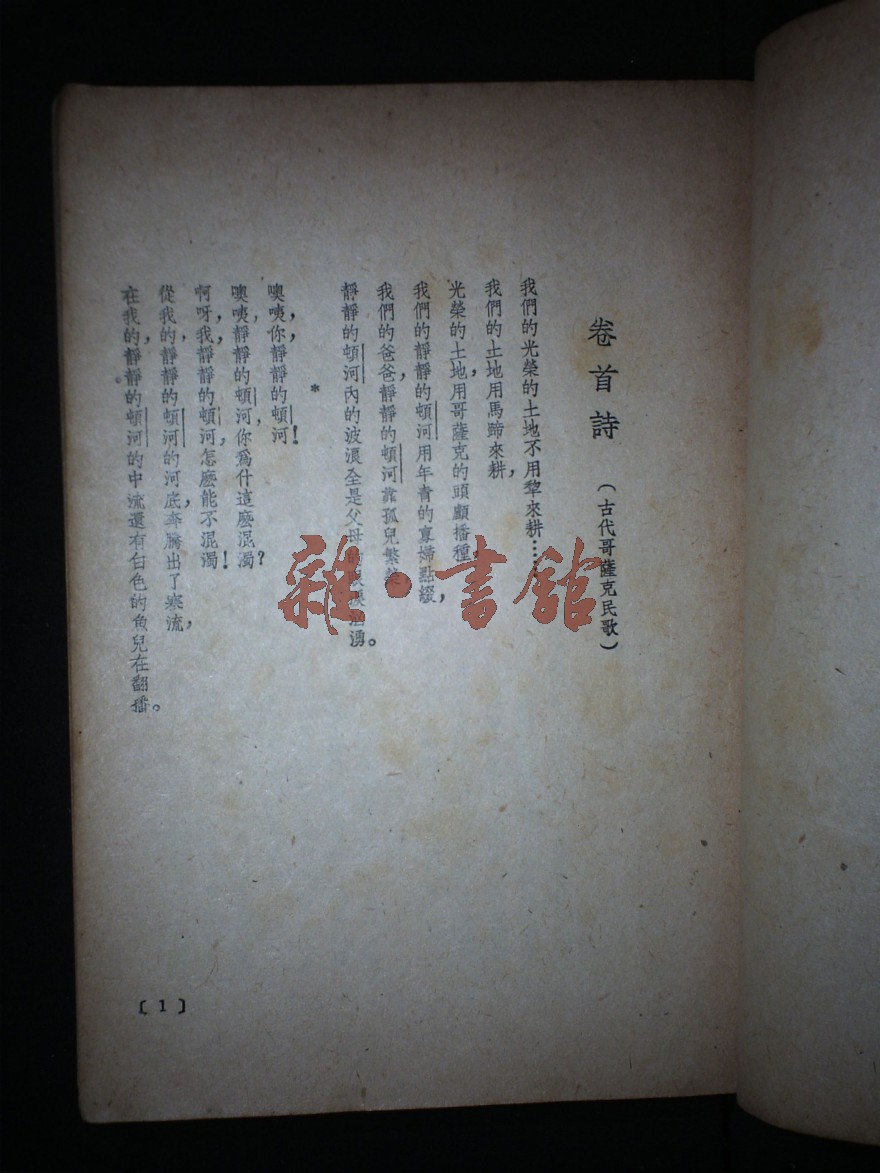 卷首詩 (古代哥薩克民歌)
我們的光榮的土地不用犂來耕……
我們的土地用馬蹄來耕,
光榮的土地用哥薩克的頭顱播種。
我們的靜靜的頓河用年青的寡婦點綴,
我們的爸爸,靜靜的頓河靠孤兒繁榮
靜靜的頓河內的波浪全是父母的洶湧。
*
噢,咦,你靜靜的頓河!
噢咦,靜靜的頓河,你爲什這麽混濁?
啊呀,我,靜靜的頓河,怎麽能不混濁!
從我的,靜靜的頓河的河底,奔騰出了寒流,
在我的,靜靜的頓河的中流還有白色的魚兒在翻播。
[1]
雜·書館